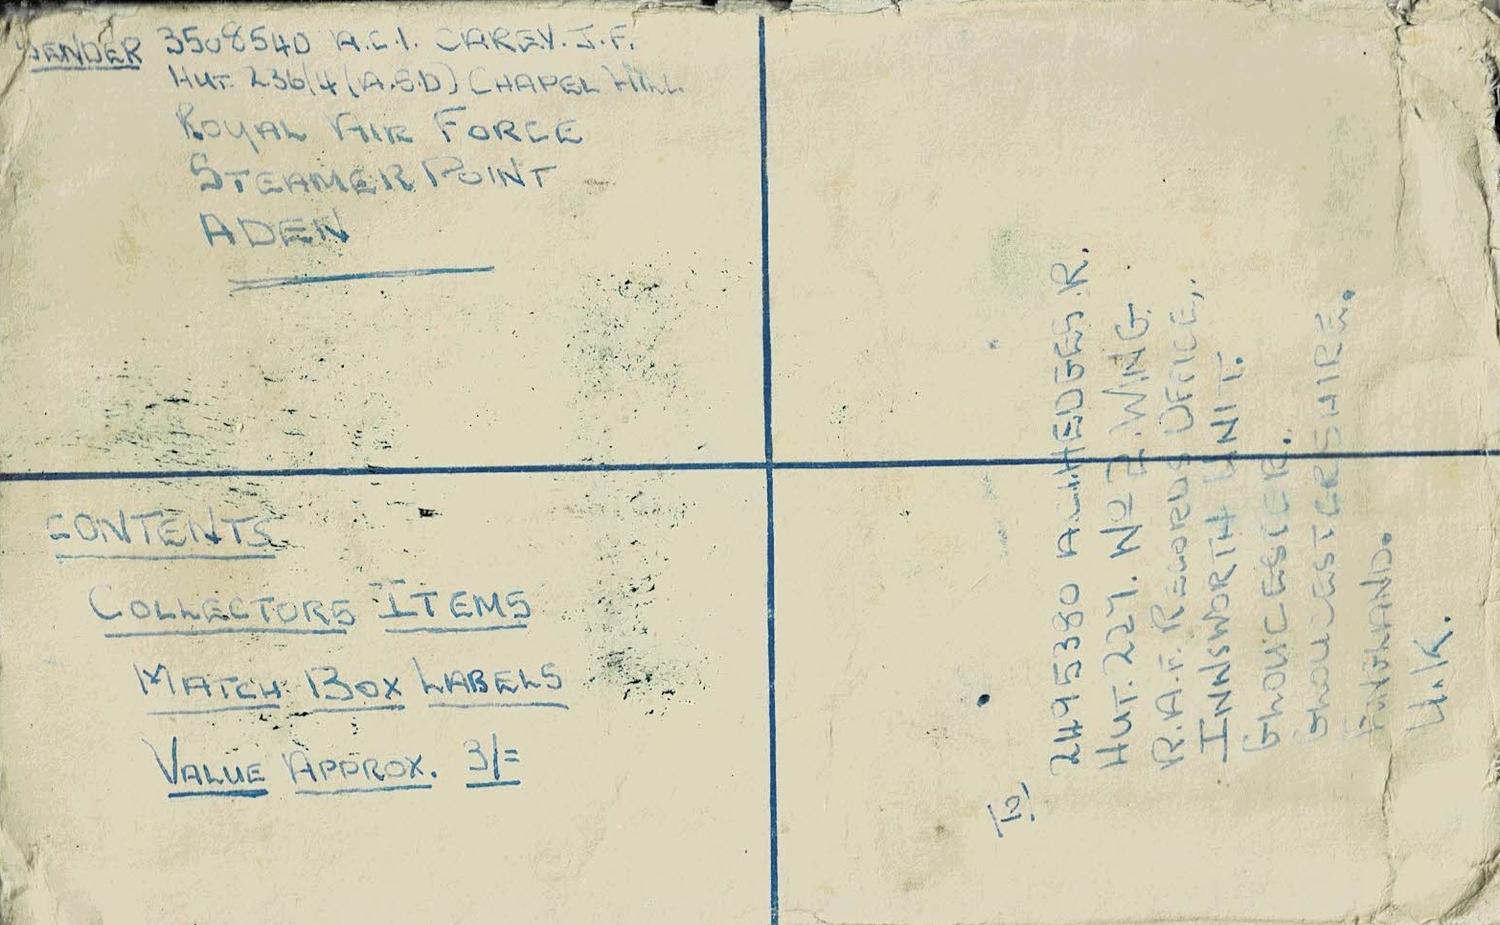 SENDER 3508540 A.C.1. CAREY. J.F.
HUT 236/4 (A.S.D) CHAPEL HILL
ROYAL AIR FORCE
STEAMER POINT
ADEN
CONTENTS
COLLECTORS ITEMS
MATCH BOX LABELS
VALUE APPROX. 3/=
2495380 HEDGES R.
HUT. 227. No 2. WING
R.A.F. RECORDS OFFICE,
INNSWORTH UNIT.
GLOUCESTER.
GLOUCESTERSHIRE.
ENGLAND.
U.K.